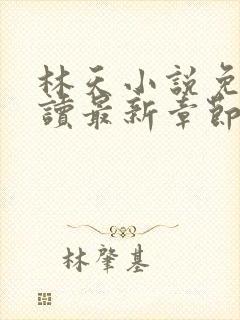 林天小說免
讀最新章節
林肇基